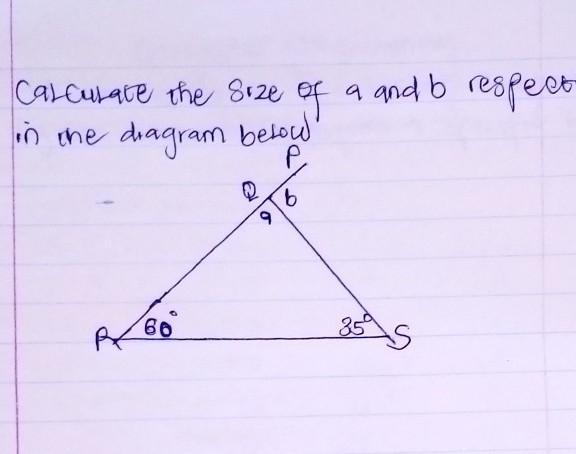 Calculate the size of a and b respect
in the diagram below
P
Q b
a
60° 35°
R S